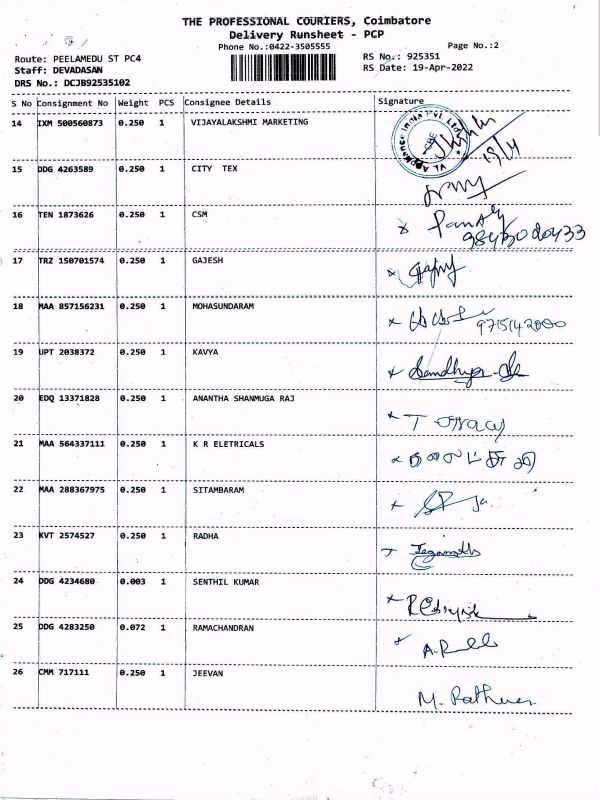 THE PROFESSIONAL COURIERS, Coimbatore
Delivery Runsheet - PCP
Phone No.:0422-3505555
Page No.:2
Route: PEELAMEDU ST PC4
RS No.: 925351
Staff: DEVADASAN
RS Date: 19-Apr-2022
DRS No.: DCJB92535102
S No Consignment No Weight PCS Consignee Details Signature
14 IXM 500560873 0.250 1 VIJAYALAKSHMI MARKETING
19/4
15 DDG 4263589 0.250 1 CITY TEX
16 TEN 1873626 0.250 1 CSM
17 TRZ 150701574 0.250 1 GAJESH
18 MAA 857156231 0.250 1 MOHASUNDARAM
19 UPT 2038372 0.250 1 KAVYA
20 EDQ 13371828 0.250 1 ANANTHA SHANMUGA RAJ
21 MAA 564337111 0.250 1 K R ELETRICALS
22 MAA 288367975 0.250 1 SITAMBARAM
23 KVT 2574527 0.250 1 RADHA
24 DDG 4234680 0.003 1 SENTHIL KUMAR
25 DDG 4283250 0.072 1 RAMACHANDRAN
26 CMM 717111 0.250 1 JEEVAN